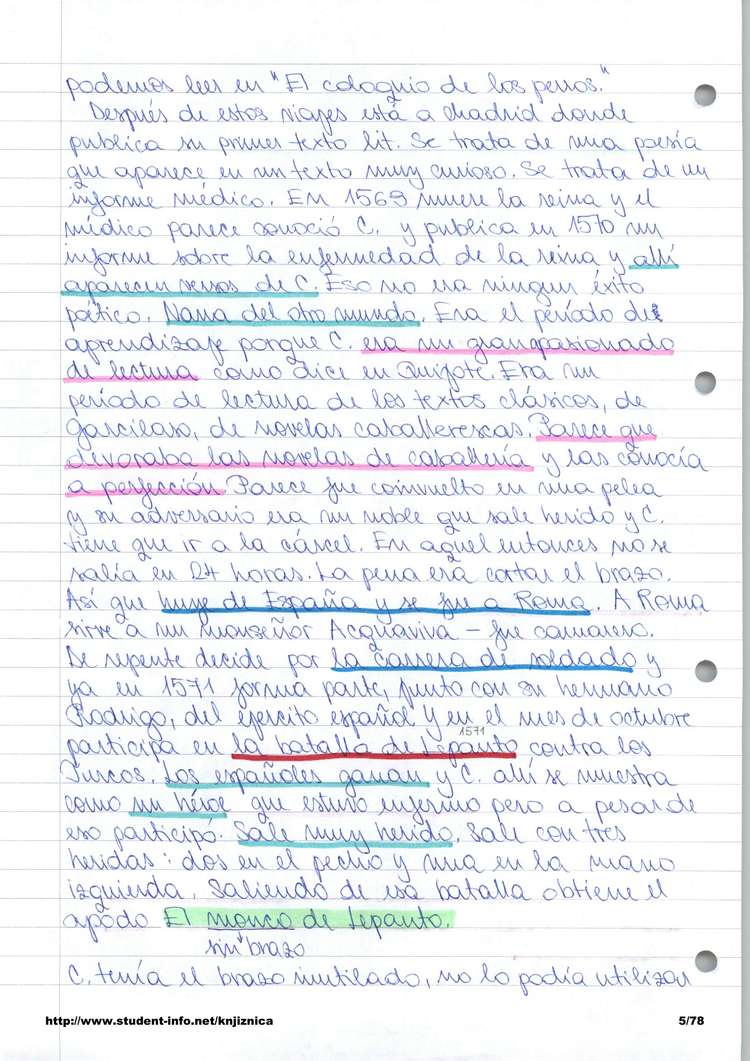 podemos leer en "El coloquio de los perros."
Después de estos viajes está a Madrid donde
publica su primer texto lit. Se trata de una poesía
que aparece en un texto muy curioso. Se trata de un
informe médico. En 1569 muere la reina y el
médico parece conoció C. y publica en 1570 un
informe sobre la enfermedad de la reina y allí
aparecen versos de C. Eso no era ningun éxito
poético. Nana del otro mundo. Era el período de
aprendizaje porque C. era un gran apasionado
de lectura como dice en Quijote. Era un
período de lectura de los textos clásicos, de
Garcilaso, de novelas caballerescas. Parece que
devoraba las novelas de caballería y las conocía
a perfección. Parece fue coinvuelto en una pelea
y su adversario era un noble que sale herido y C.
tiene que ir a la cárcel. En aquel entonces no se
salía en 24 horas. La pena era cortar el brazo.
Así que huye de España y se fue a Roma. A Roma
sirve a un monseñor Acquaviva - fue camarero.
De repente decide por la carrera de soldado y
ya en 1571 forma parte, junto con su hermano
Rodrigo, del ejercito español y en el mes de octubre
1571
participa en la batalla de Lepanto contra los
Turcos. Los españoles ganan y C. allí se muestra
como un héroe que estuvo enfermo pero a pesar de
eso participó. Sale muy herido. Sale con tres
heridas: dos en el pecho y una en la mano
izquierda. Saliendo de esa batalla obtiene el
apodo El manco de Lepanto.
sin brazo
C. tenía el brazo inutilado, no lo podía utilizar
http://www.student-info.net/knjiznica
5/78